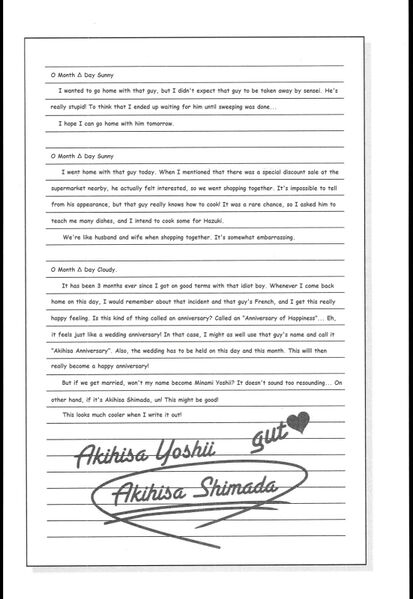 O Month Δ Day Sunny
I wanted to go home with that guy, but I didn't expect that guy to be taken away by sensei. He's
really stupid! To think that I ended up waiting for him until sweeping was done...
I hope I can go home with him tomorrow.
O Month Δ Day Sunny
I went home with that guy today. When I mentioned that there was a special discount sale at the
supermarket nearby, he actually felt interested, so we went shopping together. It's impossible to tell
from his appearance, but that guy really knows how to cook! It was a rare chance, so I asked him to
teach me many dishes, and I intend to cook some for Hazuki.
We're like husband and wife when shopping together. It's somewhat embarrassing.
O Month Δ Day Cloudy.
It has been 3 months ever since I got on good terms with that idiot boy. Whenever I come back
home on this day, I would remember about that incident and that guy's French, and I get this really
happy feeling. Is this kind of thing called an anniversary? Called an "Anniversary of Happiness"... Eh,
it feels just like a wedding anniversary! In that case, I might as well use that guy's name and call it
"Akihisa Anniversary". Also, the wedding has to be held on this day and this month. This will then
really become a happy anniversary!
But if we get married, won't my name become Minami Yoshii? It doesn't sound too resounding... On
other hand, if it's Akihisa Shimada, un! This might be good!
This looks much cooler when I write it out!
Akihisa Yoshii gut♥
Akihisa Shimada